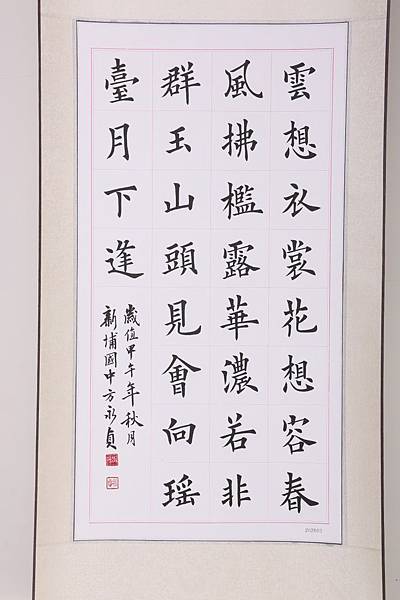 雲想衣裳花想容春
風拂檻露華濃若非
群玉山頭見會向瑤
臺月下逢
歲值甲午年秋月
新埔國中方永貞